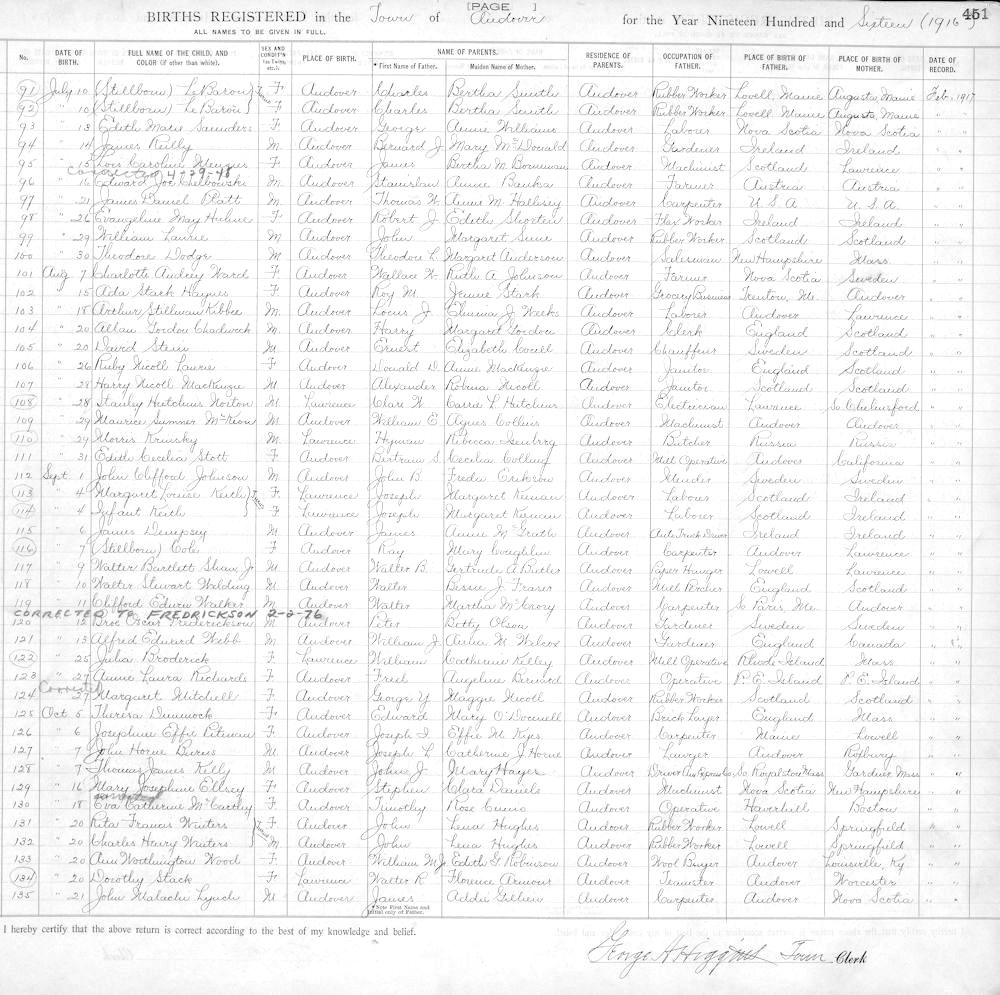 [PAGE ] 451
BIRTHS REGISTERED in the Town of Andover for the Year Nineteen Hundred and Sixteen (1916)
ALL NAMES TO BE GIVEN IN FULL.
No. DATE OF BIRTH. FULL NAME OF THE CHILD, AND COLOR (if other than white). SEX AND CONDIT'N (as Twins, etc.). PLACE OF BIRTH. NAME OF PARENTS. * First Name of Father. Maiden Name of Mother. RESIDENCE OF PARENTS. OCCUPATION OF FATHER. PLACE OF BIRTH OF FATHER. PLACE OF BIRTH OF MOTHER. DATE OF RECORD.
91 July 10 (Stillborn) LeBaron F Andover Charles Bertha Smith Andover Rubber Worker Lovell, Maine Augusta, Maine Feb. 1917
92 " 10 (Stillborn) LeBaron F Andover Charles Bertha Smith Andover Rubber Worker Lovell, Maine Augusta, Maine " "
93 " 13 Edith Mary Saunders F Andover George Annie Williams Andover Laborer Nova Scotia Nova Scotia " "
94 " 14 James Reilly M. Andover Bernard J. Mary McDonald Andover Gardener Ireland Ireland " "
95 " 15 Lois Caroline Menzies F Andover James Bertha M. Andover Machinist Scotland Lawrence " "
Corrected 4-29-48
96 " 16 Edward Joe M. Andover Stanislaw Annie Andover Farmer Austria Austria " "
97 " 21 James Daniel Platt M Andover Thomas W. Annie M. Hallisey Andover Carpenter U.S.A U.S.A. " "
98 " 26 Evangeline May Hulme F Andover Robert J. Edith Shorten Andover Flax Worker Ireland Ireland " "
99 " 29 William Laurie M Andover John Margaret Andover Rubber Worker Scotland Scotland " "
100 " 30 Theodore Dodge M Andover Theodore L. Margaret Anderson Andover Salesman New Hampshire Mass. " "
101 Aug. 7 Charlotte Audrey Ward F Andover Wallace W. Ruth A. Johnson Andover Farmer Nova Scotia Sweden " "
102 " 15 Ada Stark Haynes F Andover Roy M. Jennie Stark Andover Grocery Business Trenton, Me. Andover " "
103 " 18 Arthur Stillman Kibbee M. Andover Louis J. Emma J. Weeks Andover Laborer Andover Lawrence " "
104 " 20 Allan Gordon Chadwick M. Andover Harry Margaret Gordon Andover Clerk England Scotland " "
105 " 20 David Stein M Andover Ernest Elizabeth Andover Chauffeur Sweden Scotland " "
106 " 26 Ruby Nicoll Laurie F Andover Donald D. Annie MacKenzie Andover Janitor England Scotland " "
107 " 28 Harry Nicoll MacKenzie M Andover Alexander Robina Nicoll Andover Janitor Scotland Scotland " "
108 " 28 Stanley Hutchins Norton M Lawrence Clare W. Carrie L. Hutchins Andover Electrician Lawrence So. Chelmsford " "
109 " 29 Maurice Sumner McKeon M Andover William E. Agnes Collins Andover Machinist Andover Andover " "
110 " 29 Morris Krinsky M. Lawrence Hyman Rebecca Andover Butcher Russia Russia " "
111 " 31 Edith Cecelia Stott F Andover Bertram S. Cecelia Collins Andover Mill Operative Andover California " "
112 Sept. 1 John Clifford Johnson M Andover John B. Freda Erikson Andover Sweden Sweden " "
113 " 4 Margaret Louise Keith F. Lawrence Joseph Margaret Andover Laborer Scotland Ireland "
114 " 4 Infant Keith F. Lawrence Joseph Margaret Andover Laborer Scotland Ireland " "
115 " 6 James Dempsey M Andover James Annie McGrath Andover Auto Truck Driver Ireland Ireland " "
116 " 7 (Stillborn) Cole F Andover Ray Mary Coughlin Andover Carpenter Andover Lawrence " "
117 " 9 Walter Bartlett Shaw, Jr M Andover Walter B. Gertrude A. Butler Andover Paper Hanger Lowell Lawrence " "
118 " 10 Walter Stewart Walding M Andover Walter Bessie J. Fraser Andover England Scotland " "
119 " 11 Clifford Edwin Walker M Andover Walter Martha McCrory Andover Carpenter So. Paris, Me. Andover " "
CORRECTED TO FREDRICKSON 2-2-76
120 " 12 Oscar Frederickson M Andover Peter Betty Olson Andover Gardener Sweden Sweden " "
121 " 13 Alfred Edward Webb M Andover William J. M. Wilcox Andover Gardener England Canada " "
122 " 25 Julia Broderick F Lawrence William Catherine Kelley Andover Mill Operative Rhode Island Mass " "
123 " 27 Annie Laura Richards F Andover Fred Angeline Bernard Andover Operative P. E. Island P. E. Island " "
Corrected
124 " 27 Margaret Mitchell F Andover George Y. Maggie Nicoll Andover Rubber Worker Scotland Scotland " "
125 Oct. 5 Theresa Dimmock F Andover Edward Mary O'Donnell Andover Brick Layer England Mass " "
126 " 6 Josephine Effie Peterson F Andover Joseph I. Effie M. Keys Andover Carpenter Maine Lowell " "
127 " 7 John Horne Burns M Andover Joseph L. Catherine J. Horne Andover Lawyer Andover Roxbury " "
128 " 7 Thomas James Kelly M Andover John J Mary Hayes Andover Driver Am. Express Co. So. Royalston Mass Gardner Mass " "
129 " 16 Mary Josephine Ellsey F Andover Stephen Clara Daniels Andover Machinist Nova Scotia New Hampshire " "
corrected
130 " 18 Eva Catherine McCarthy F Andover Timothy Rose Andover Operative Haverhill Boston " "
131 " 20 Rita Francis Winters F. Andover John Lena Hughes Andover Rubber Worker Lowell Springfield " "
132 " 20 Charles Henry Winters M. Andover John Lena Hughes Andover Rubber Worker Lowell Springfield " "
133 " 20 Ann Worthington Wood F Andover William M. Jr Edith G. Robinson Andover Wool Buyer Andover Louisville, Ky. " "
134 " 20 Dorothy Stack F Lawrence Walter R. Florence Armour Andover Teamster Andover Worcester " "
135 " 21 John Malachi Lynch M Andover James Addie Gillen Andover Carpenter Andover Nova Scotia " "
* Note First Name and Initial only of Father.
I hereby certify that the above return is correct according to the best of my knowledge and belief.
George A Higgins Town Clerk